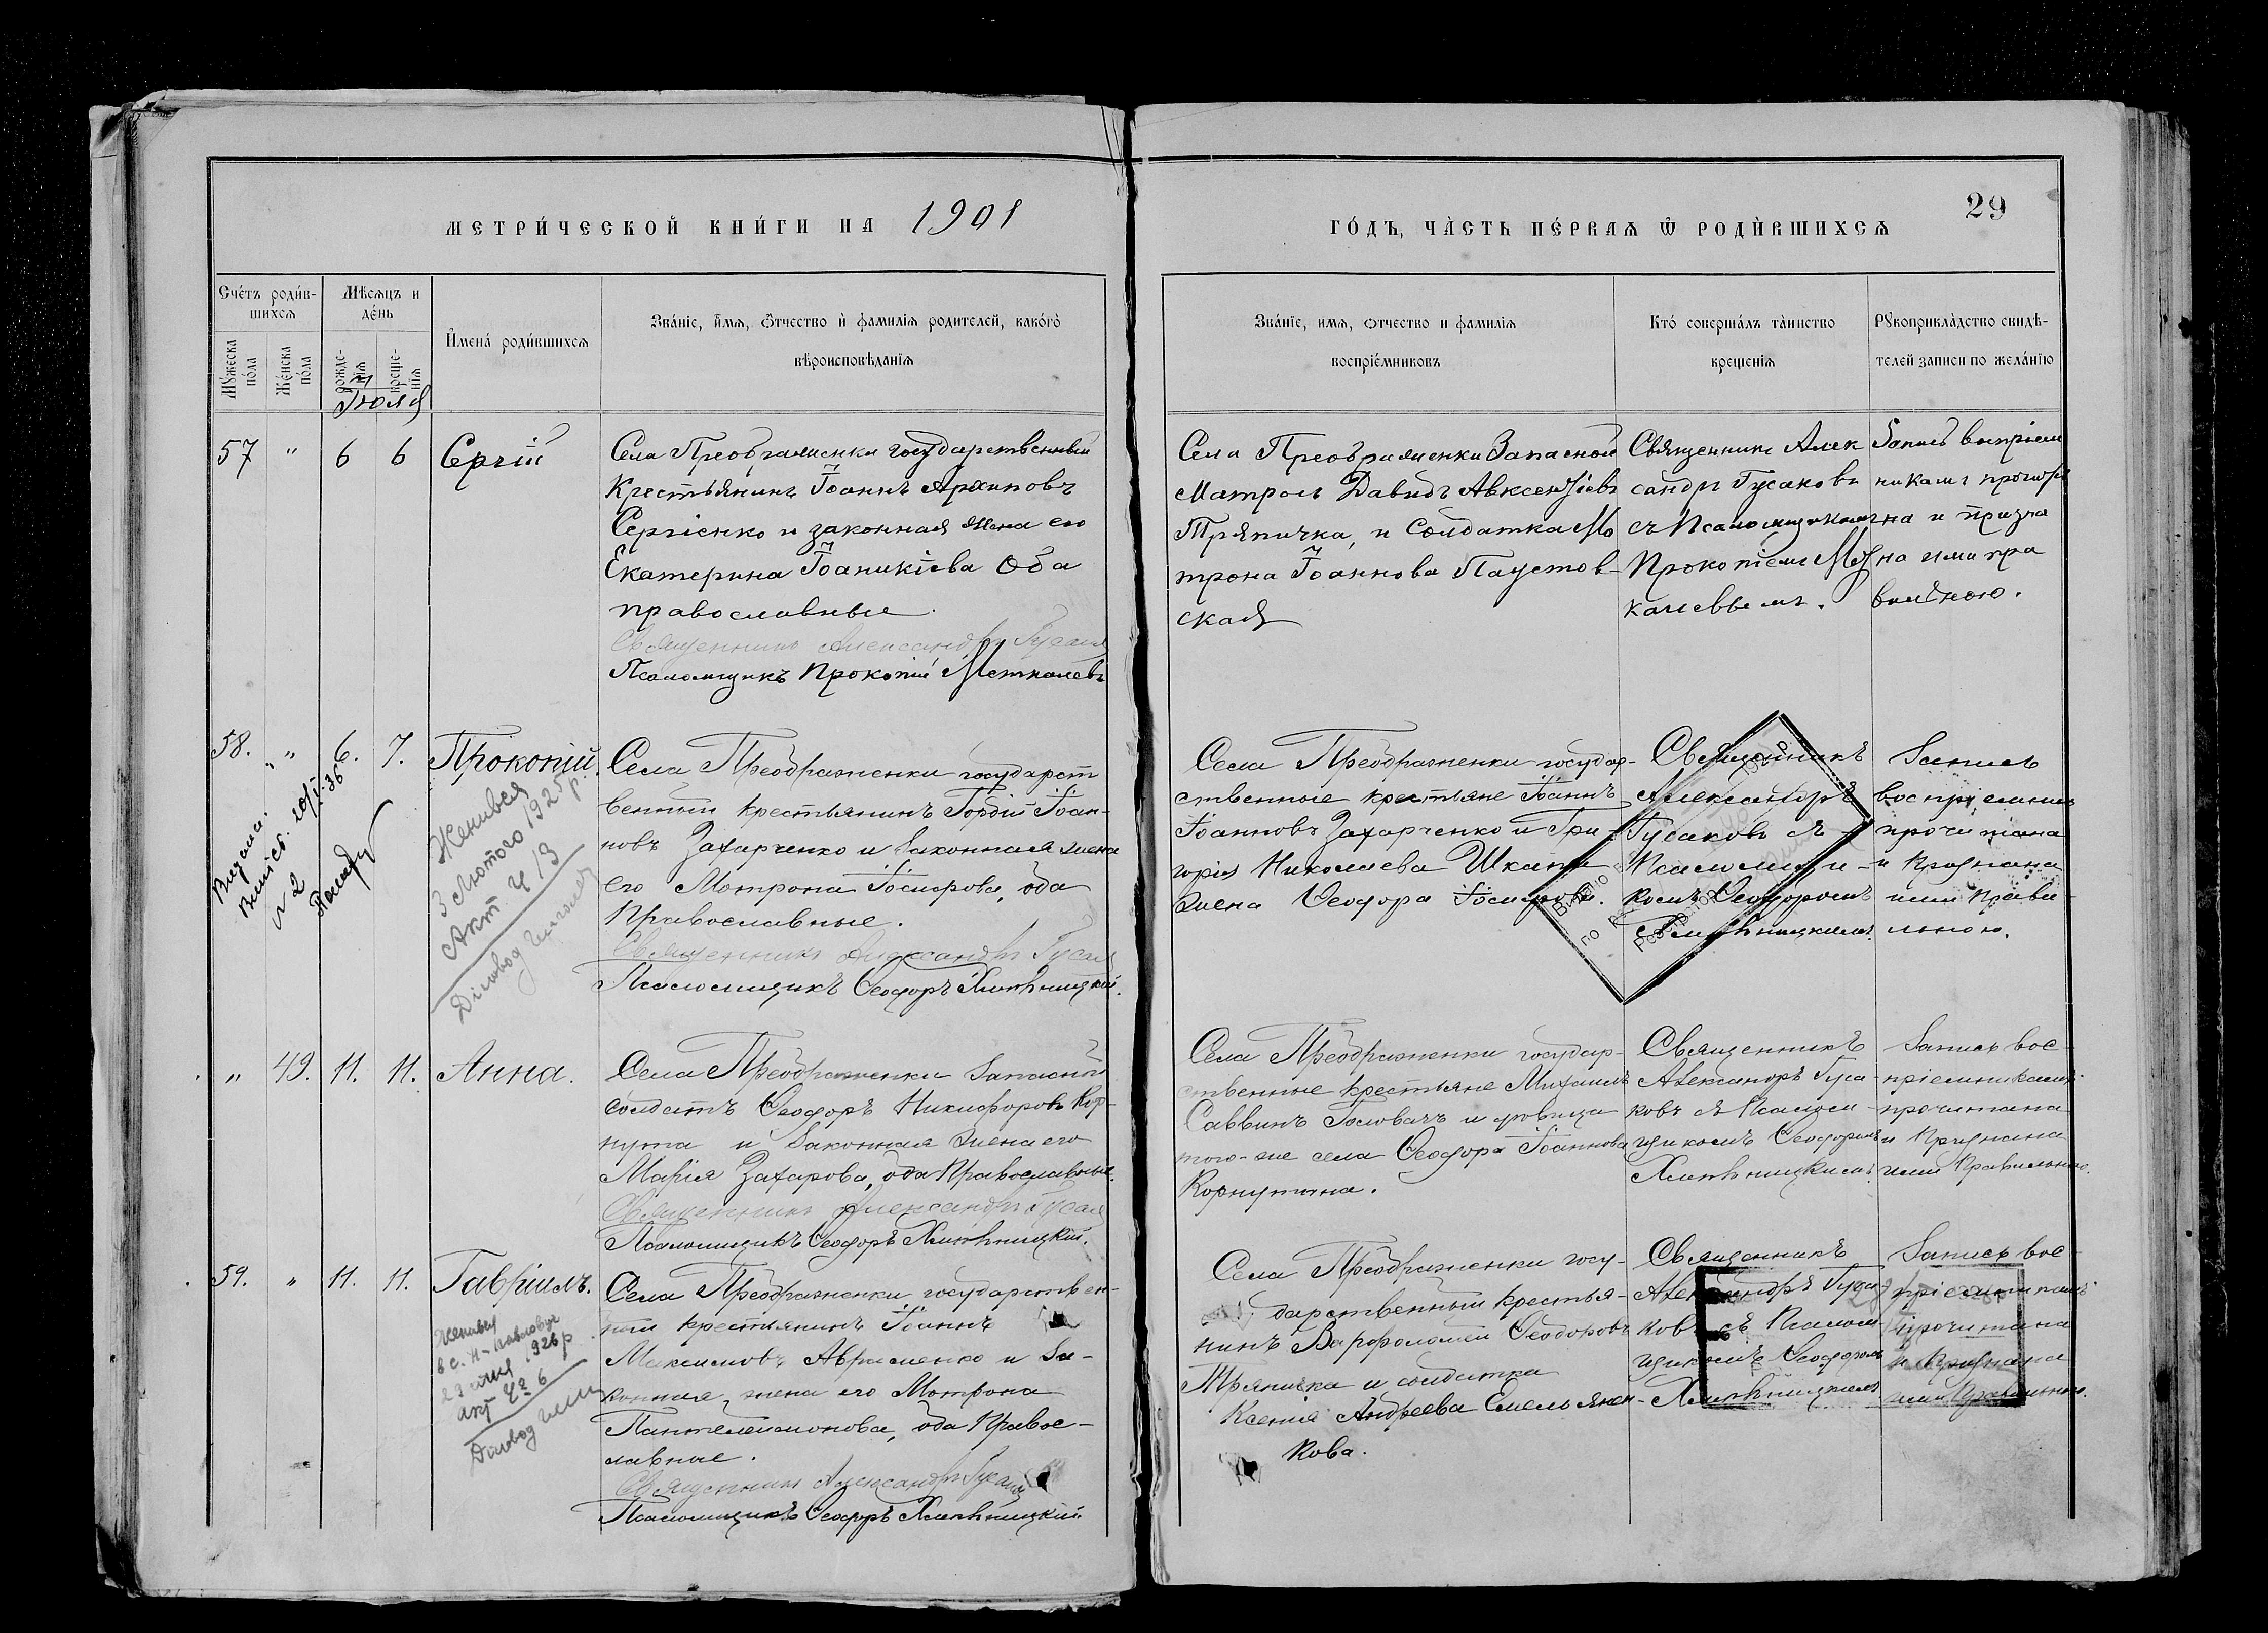 МЕТРИ́ЧЕСКОЙ КНИ́ГИ НА 1901
ГО́ДЪ, ЧА̀СТЬ ПЕ́РВАѦ Ѿ РОДИ́ВШИХСѦ
29
Сче́тъ роди́в-
шихсѧ
Мѣ́сѧцъ и
де́нь
И҆мена́ роди́вшихсѧ
Зва́нїе, и҆́мѧ, ѻ҆́тчество и҆ фами́лїѧ роди́телей, како́гѡ
вѣроисповѣ́данїѧ
Мꙋ́жеска
по́ла
Же́нска
по́ла
рожде-
нїѧ
креще-
нїѧ
Іюля
Зва́нїе, имѧ, ѻтчество и фамилїѧ
воспрїе́мниковъ
Кто́ соверша́лъ та́инство
креще́нїѧ
Рꙋкоприкла́дство свидѣ́-
телей записи по жела́нїю
57 " 6 6 Сергій
Села Преображенки государственный
Крестьянинъ Іоаннъ Архиповъ
Сергіенко и законная жена его
Екатерина Іоаникіева Оба
православные.
Священникъ Александръ Гусаковъ
Псаломщикъ Прокопій Меткалевъ
Села Преображенки Запасной
Матросъ Давидъ Авксентіевъ
Тряпичка, и Солдатка Ма
трона Іоаннова Паустов-
ская
Священникъ Алек
сандръ Гусаковъ
съ Псаломщикомъ
Прокопіемъ Мет
калевымъ.
Запись воспріем
никамъ прочита
на и призна
на ими пра
вильною.
58. " 6. 7. Прокопій.
Села Преображенки государст
венный крестьянинъ Гордій Іоан-
новъ Захарченко и законная жена
его Матрона Іосифова, оба
Православные.
Священникъ Александръ Гусаковъ
Псаломщикъ Ѳеодоръ Хмѣльницкій.
Женився
3 лютого 1925 р.
Акт. ч 13
Діловод
Видана.
№ 2
Села Преображенки государ-
ственные крестьяне Іоаннъ
Іоанновъ Захарченко и Гри-
горія Николаева Шкапы
жена Ѳеодора Іосифова.
Священникъ
Александръ
Гусаковъ съ
Псаломщи-
комъ Ѳеодоромъ
Хмѣльницкимъ.
Запись
воспріемникамъ
прочитана
и признана
ими прави-
льною.
" 49. 11. 11. Анна.
Села Преображенки запасный
солдатъ Ѳеодоръ Никифоровъ Кор-
нута и законная жена его
Марія Захарова, оба Православные.
Священникъ Александръ Гусаковъ
Псаломщикъ Ѳеодоръ Хмѣльницкій.
Села Преображенки государ-
ственные крестьяне Михаилъ
Саввинъ Головачъ и дѣвица
того-же села Ѳеодора Іоаннова
Корнутина.
Священникъ
Александръ Гуса-
ковъ съ Псаломщ-
щикомъ Ѳеодоромъ
Хмѣльницкимъ.
Запись вос-
пріемникамъ
прочитана
и признана
ими правильною.
59. " 11. 11. Гавріилъ.
Села Преображенки государствен-
ный крестьянинъ Іоаннъ
Максимовъ Авраменко и за-
конная жена его Матрона
Пантелеимонова, оба Правос-
лавные.
Священникъ Александръ Гусаковъ
Псаломщикъ Ѳеодоръ Хмѣльницкій
Женився
в с. Н-Павловці
23 січня 1926 р
акт Чр 6
Діловод
Села Преображенки госу-
дарственный крестья-
нинъ Варфоломей Ѳеодоровъ
Тряпичка и солдатка
Ксенія Андреева Емельянен-
кова.
Священникъ
Александръ Гуса-
ковъ съ Псалом-
щикомъ Ѳеодоромъ
Хмѣльницкимъ.
Запись вос-
пріемникамъ
прочитана
и признана
ими правильною.